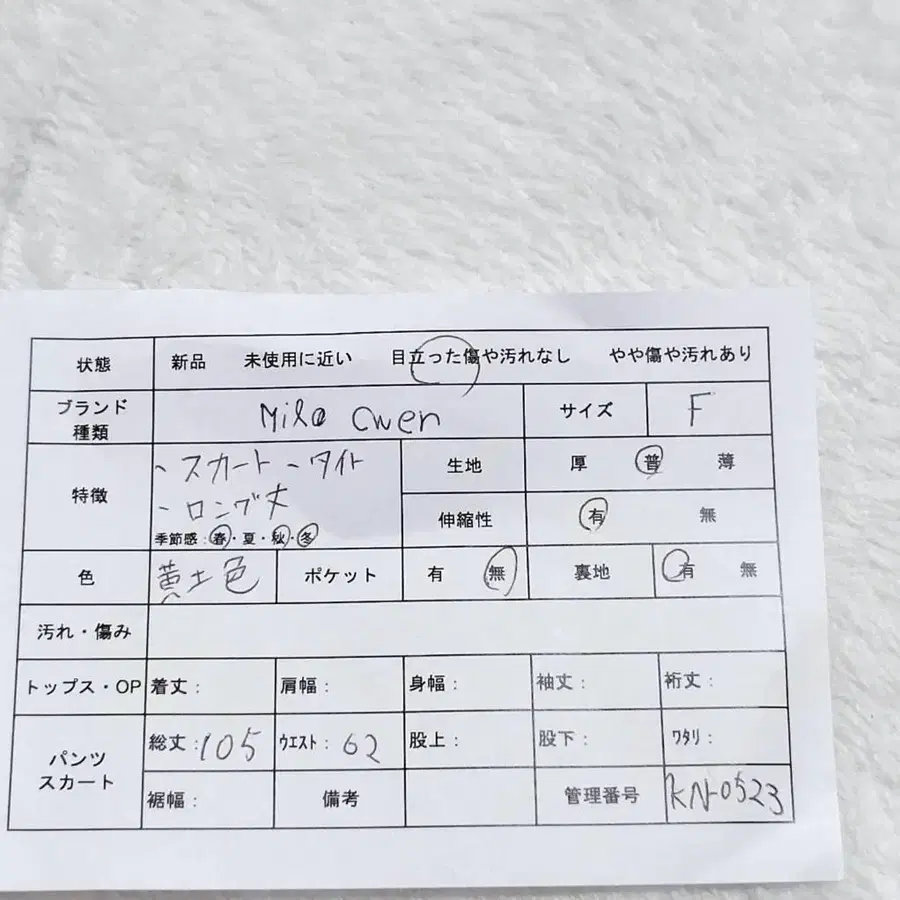 状態 新品 未使用に近い 目立った傷や汚れなし やや傷や汚れあり
ブランド 種類 Mila Cwen サイズ F
特徴 ・スカート ・タイト
・ロング丈
季節感：春・夏・秋・冬
生地 厚 普 薄
伸縮性 有 無
色 黄土色 ポケット 有 無 裏地 有 無
汚れ・傷み
トップス・OP 着丈： 肩幅： 身幅： 袖丈： 裄丈：
パンツ スカート 総丈：105 ウエスト：62 股上： 股下： ワタリ：
裾幅： 備考 管理番号 KN-0523